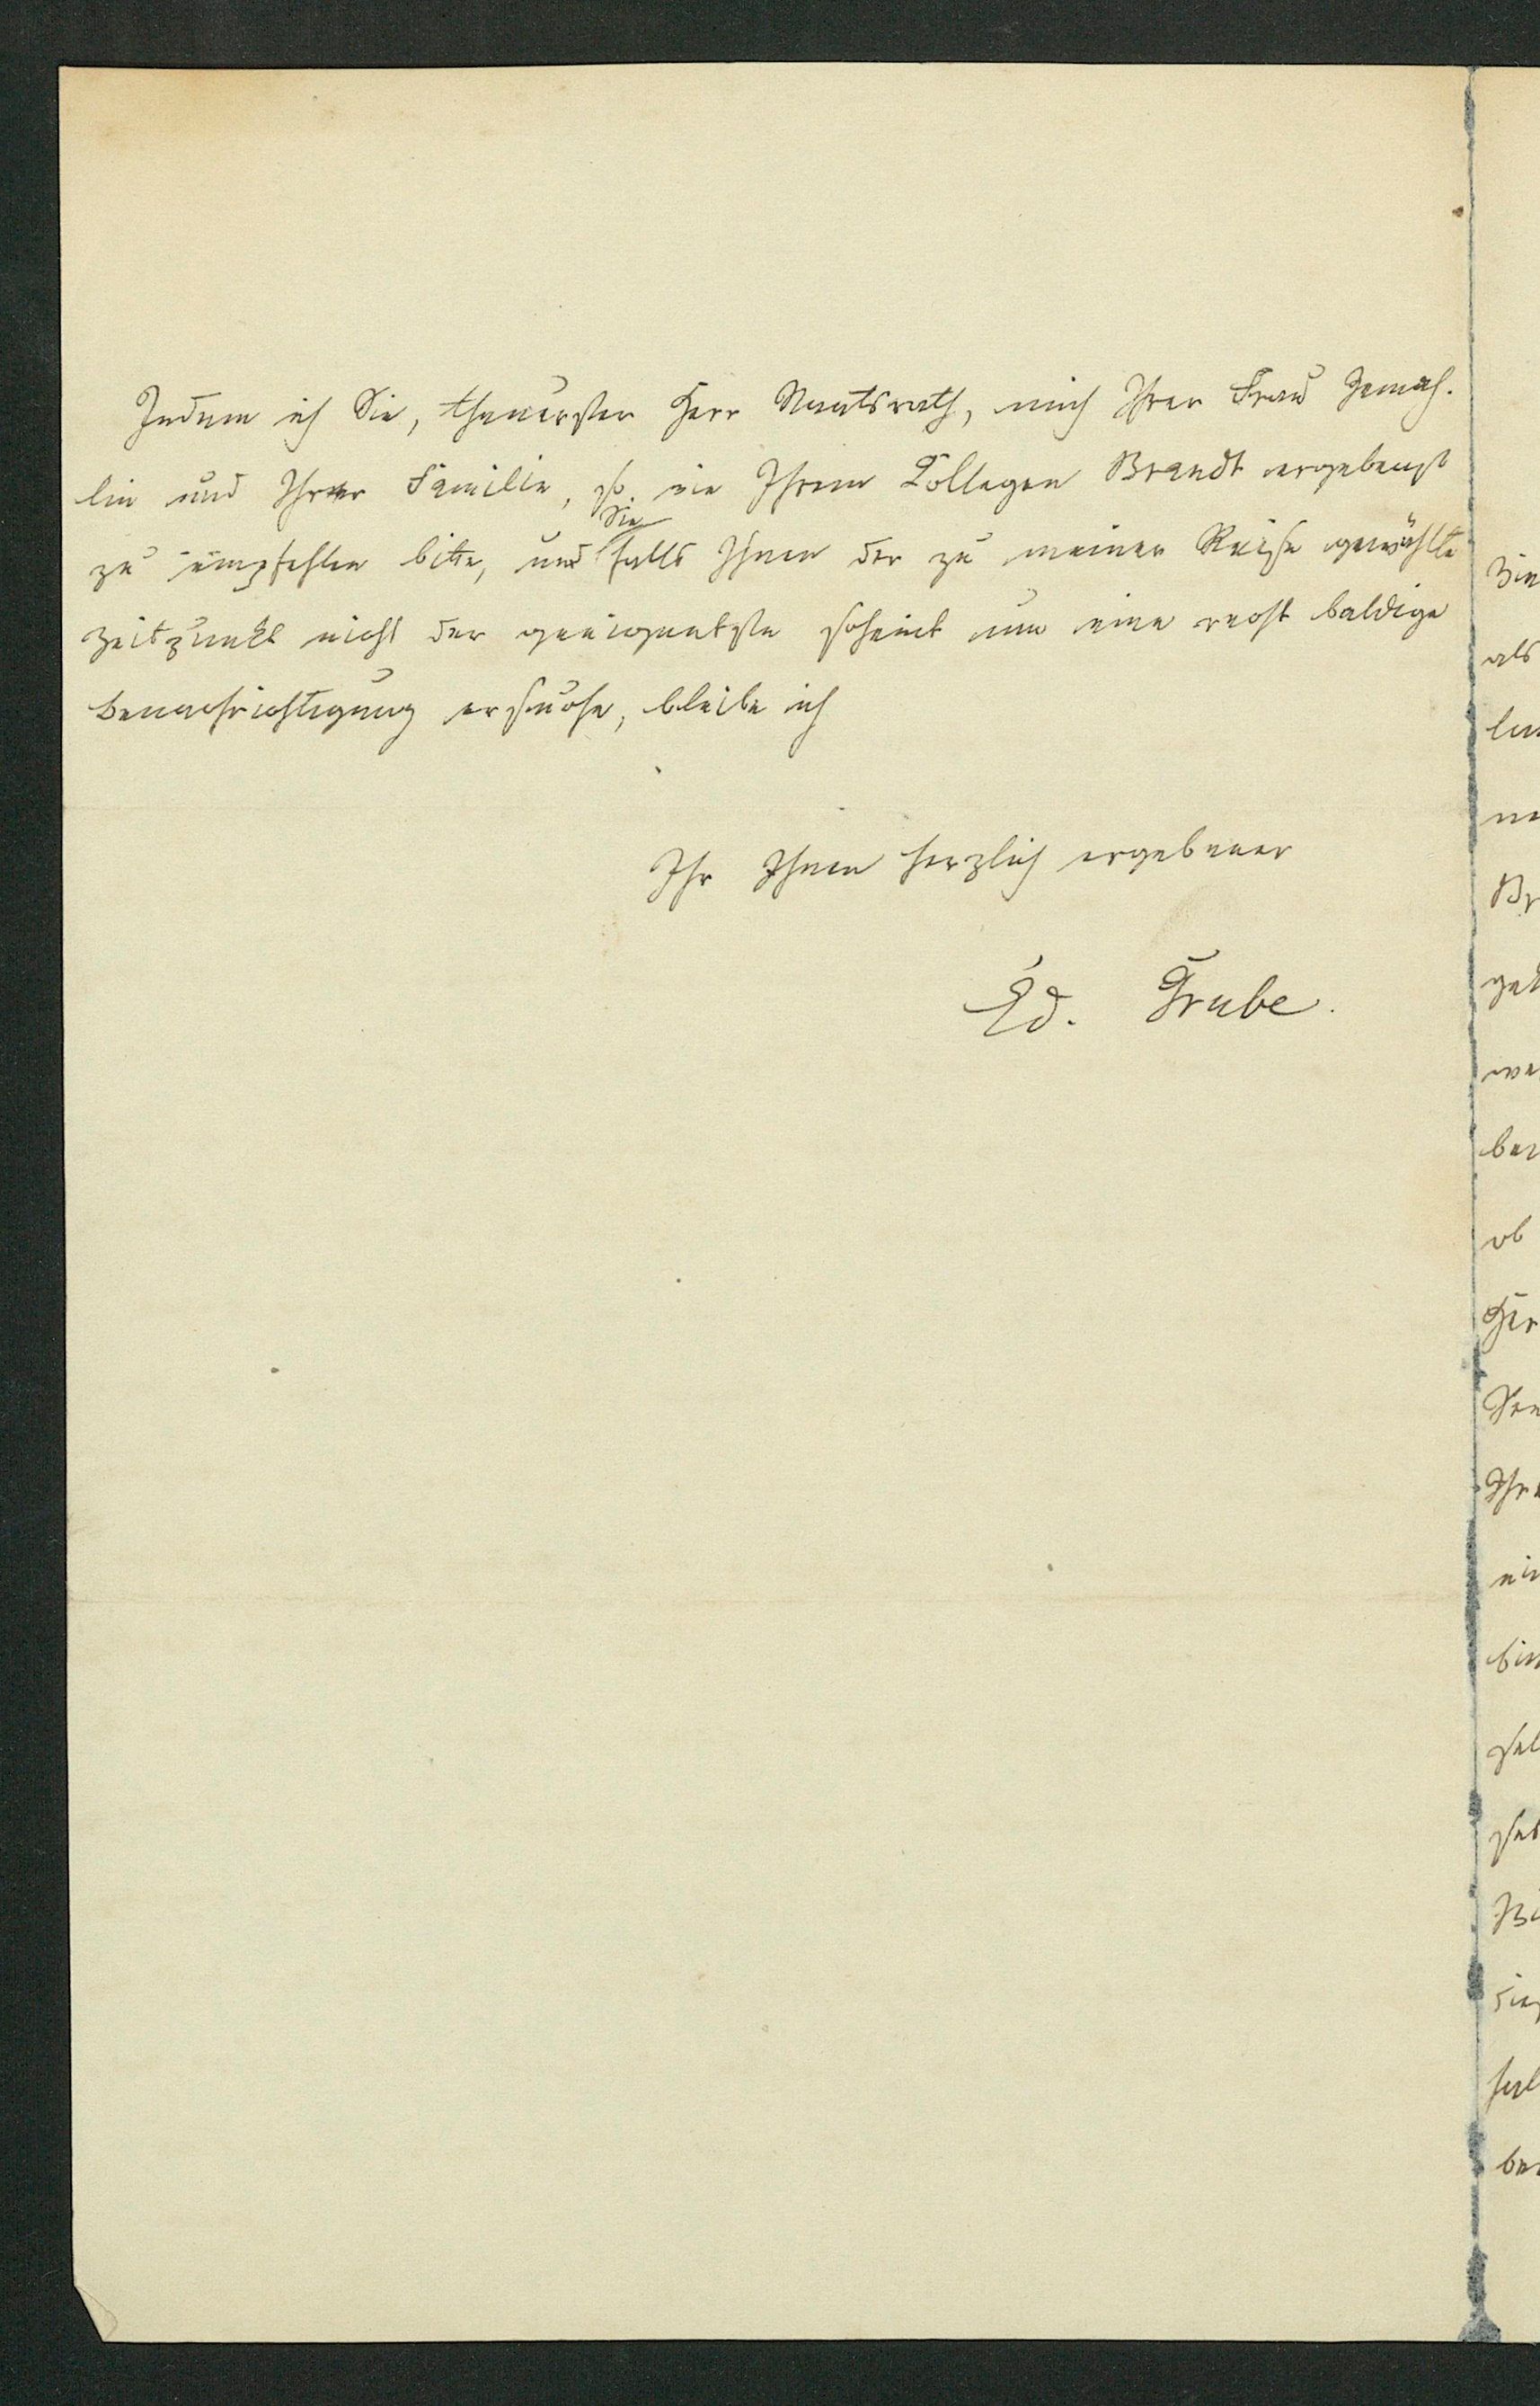 Indem ich Sie, theuerster Herr Staatsrath, mich Ihrer Frau Gemah-
lin und Ihrer Familie, so wie Ihrem Collegen Brandt ergebenst
zu empfehlen bitte, und Sie falls Ihnen der zu meiner Reise gewählte
Zeitpunkt nicht der geeigneteste scheint um eine recht baldige
Benachrichtigung ersuche, bleibe ich
Ihr Ihnen herzlich ergebener
Ed. Grube.
als
ob